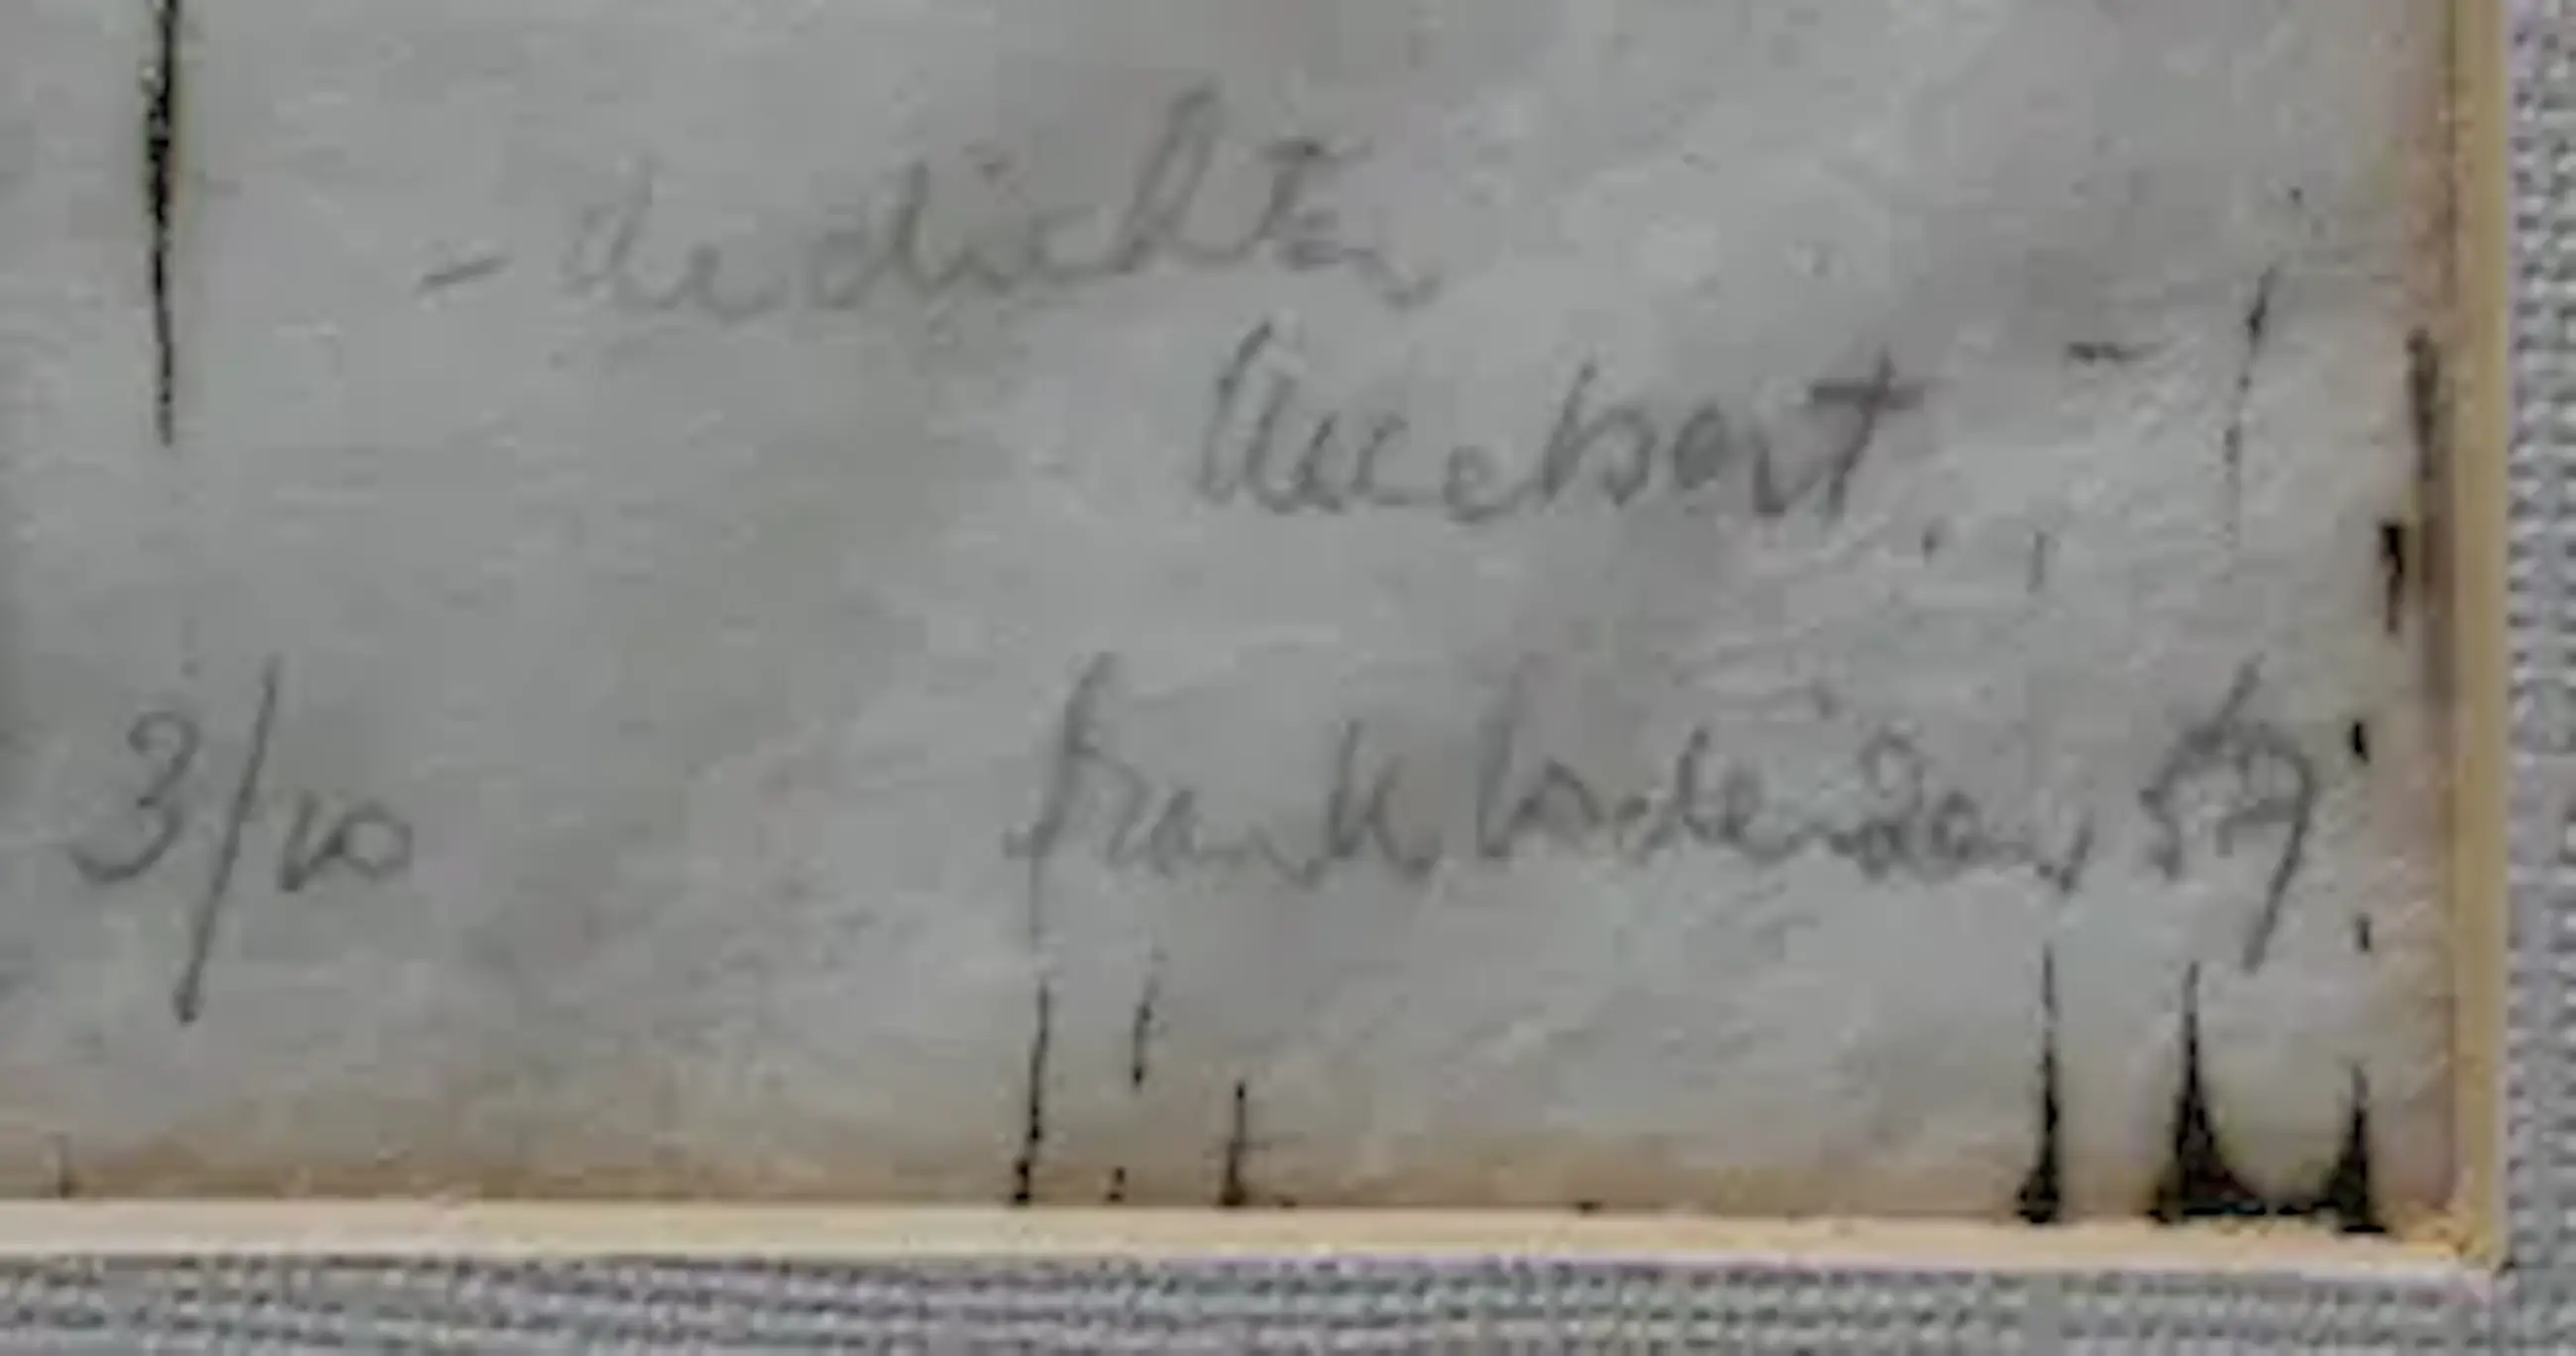 - de dichter
lucebert -
3/10 frank lodeizen 59